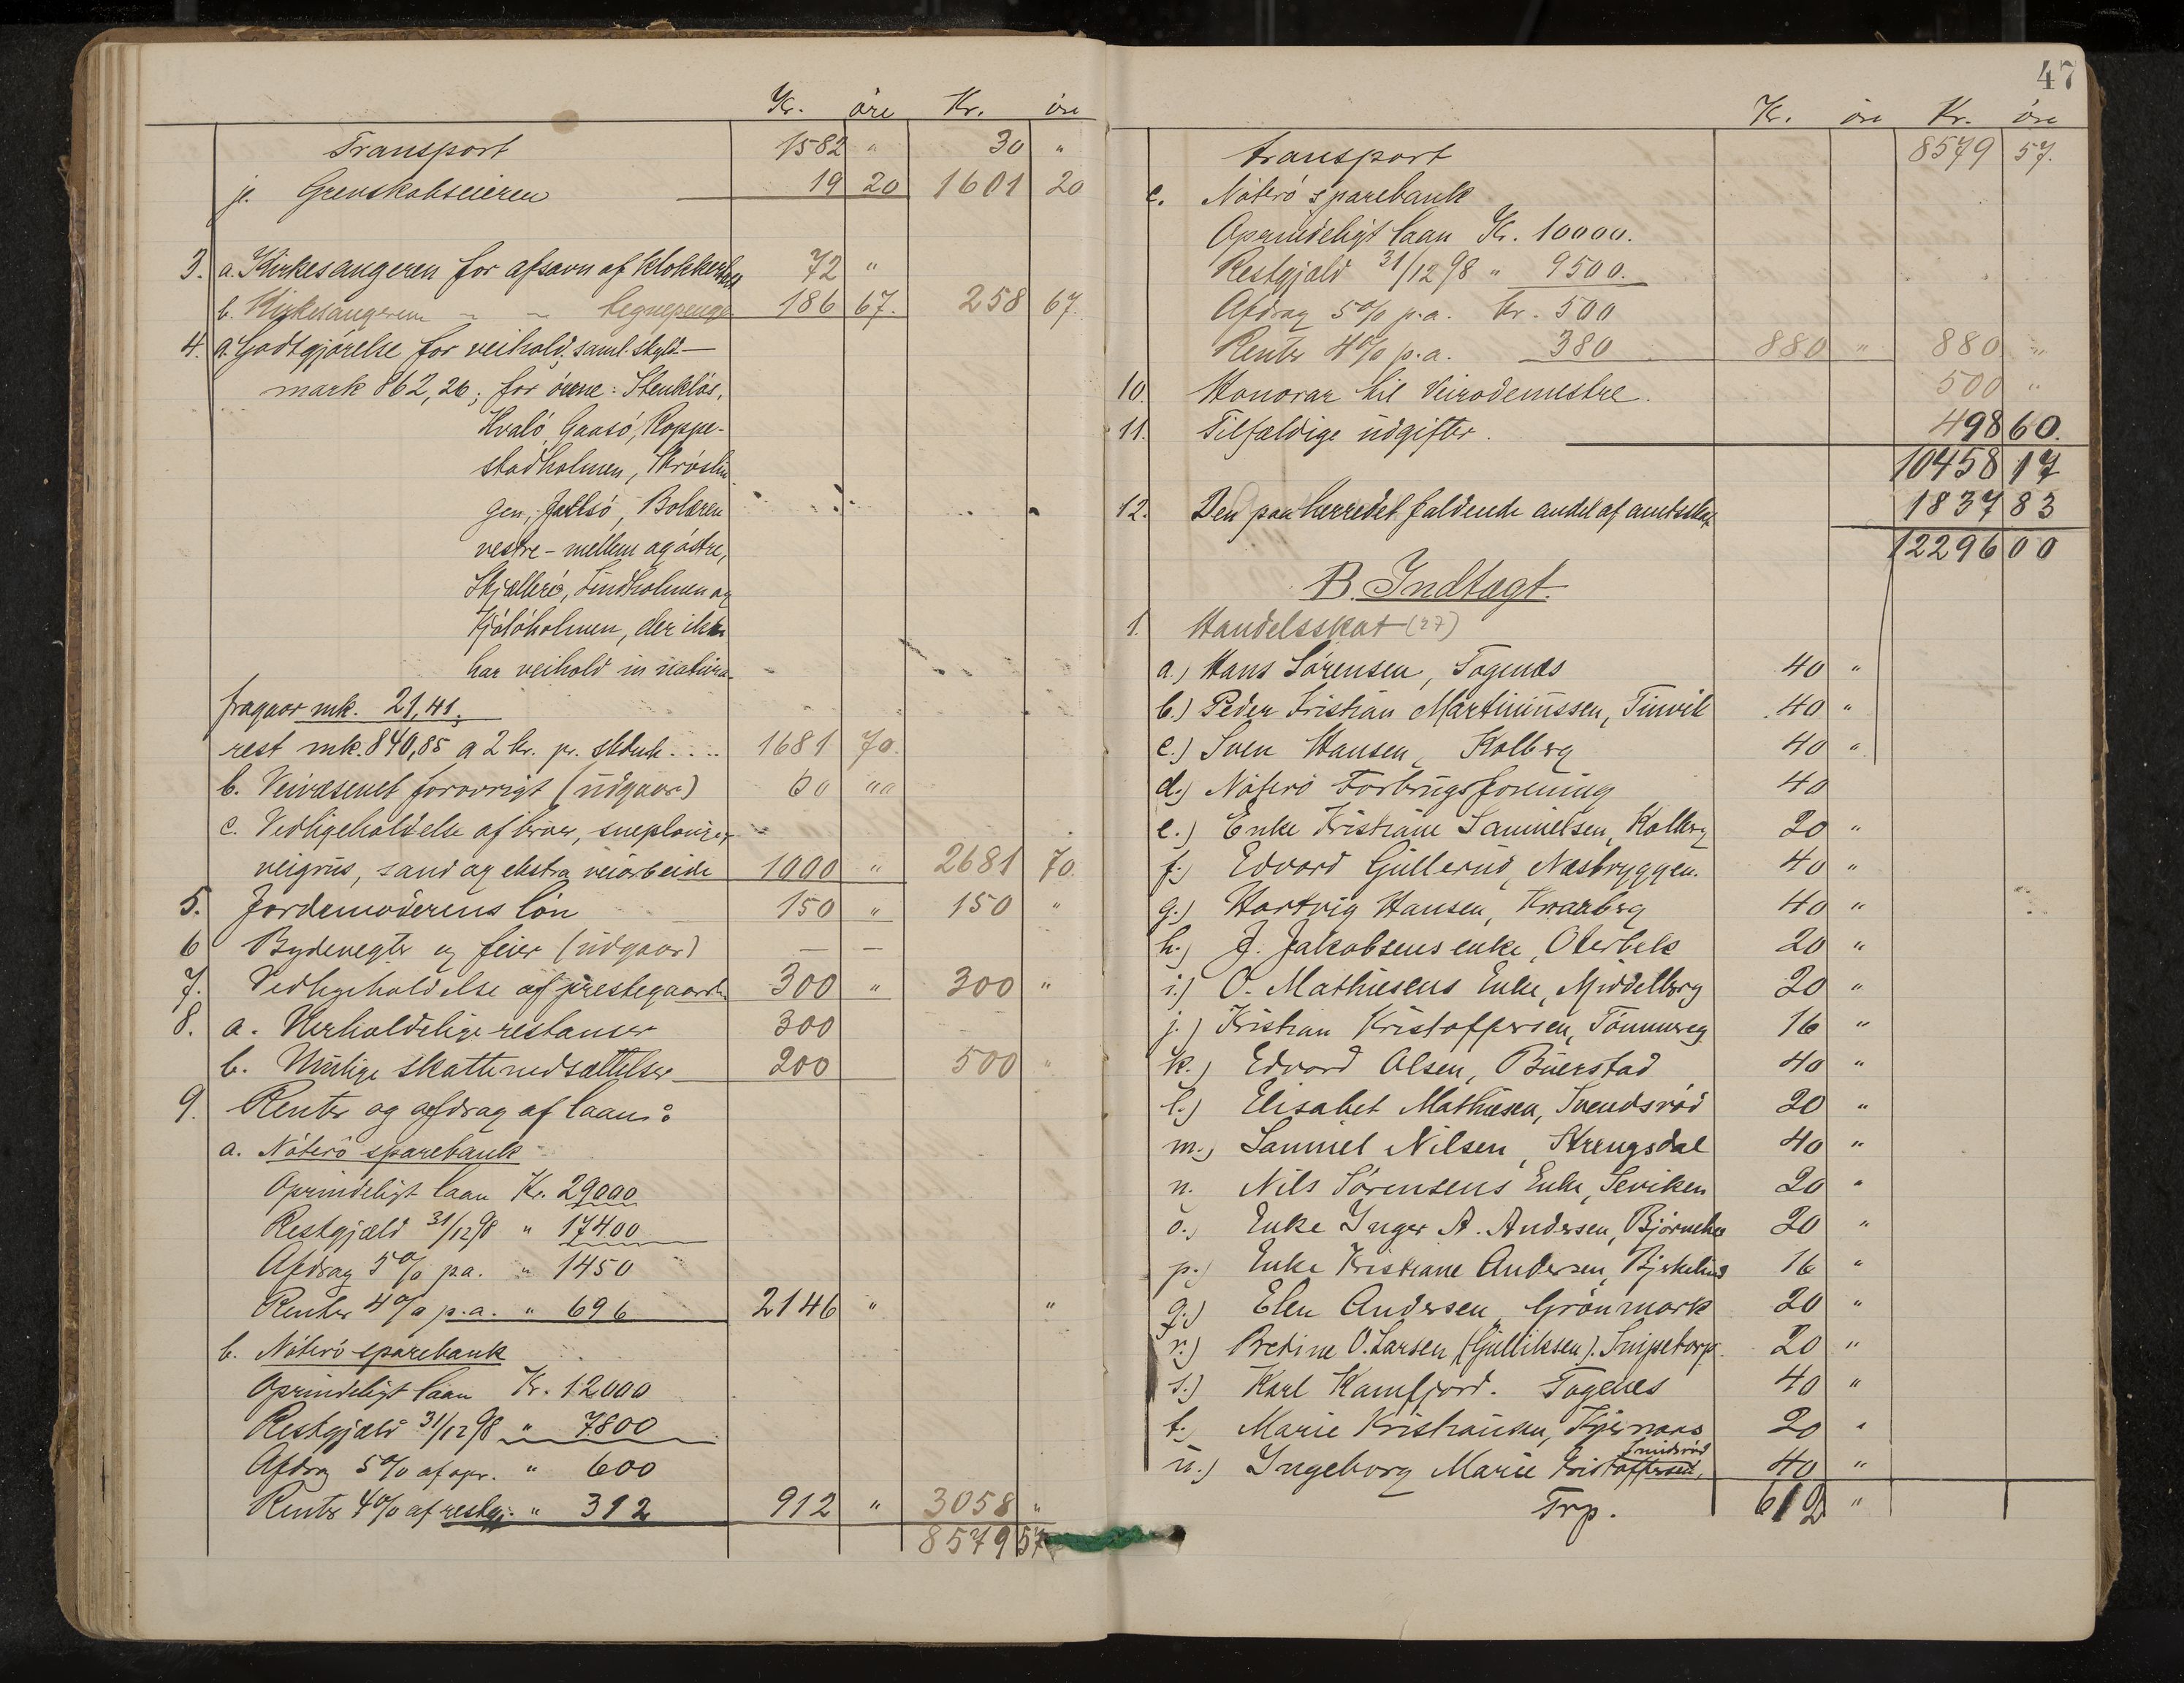 Kr. öre Kr. öre
Transport 1582 " 30 "
je. 19 20 1601 20
3. a. Kirkesangeren for afsavn af 72 "
b. Kirkesangeren " " 186 67. 258 67.
4. a. Godtgjørelse for veihold, saml. skyld-
mark 862,26; for öerne: Stenklös,
Hvalö, Gaasö, Koppe-
stadholmen,
gen, Jætlsö, Bolæren
vestre - mellem og östre,
Skjællerö, Lindholmen og
Kjölöholmen, der ikke
har veihold in natura.
fragaar mk. 21,41;
rest mk. 840,85 a 2 kr. pr. skmk.... 1681 70.
b. Veivæsenet forøvrigt (udgaar) ""
c. Vedligeholdelse af broer, sneplouger,
veigrus, sand og ekstra veiarbeide 1000 " 2681 70.
5. Jordemoderens lön 150 " 150 "
6 Bydevegter og feier (udgaar) — —
7. Vedligeholdelse af prestegaarden 300 " 300 "
8. a. Uerholdelige restanser 300
b. Mulige skattenedsættelser 200 500 "
9. Renter og afdrag af laan:
a. Nöterö sparebank
Oprindeligt laan Kr. 29000
Restgjæld 31/12 98 " 17400
Afdrag 5% p.a. " 1450
Renter 4% p.a. " 696 2146 " "
b. Nöterö sparebank
Oprindeligt laan Kr. 12000
Restgjæld 31/12 98 " 7800
Afdrag 5% af opr. " 600
Renter 4% af restgj. " 312 912 " 3058 "
8579 57
47
Kr. öre Kr. öre
transport 8579 57.
c. Nöterö sparebank
Oprindeligt laan Kr. 10000.
Restgjæld 31/12 98 " 9500.
Afdrag 5% p.a. Kr. 500
Renter 4% p.a. 380 880 " 880 "
10. Honorar til Veirodemestre. 500 "
11. Tilfældige udgifter. 498 60.
10458 17
12. Den paa herredet faldende andel af amtsskat 1837 83
12296 00
B. Indtægt.
1. Handelsskat (27)
a.) Hans Sörensen, Tagenæs 40 "
b.) Peder Kristian Martinussen, Tinvik 40 "
c.) Sven Hansen, Kolberg 40 "
d.) Nöterö Forbrugsforening 40
e.) Enke Kristiane Samuelsen, Kolberg 20 "
f.) Edvard Gullerud, Næsbryggen. 40 "
g.) Hartvig Hansen, Kraaberg 40 "
h.) J. Jakobsens enke, Oterbek 20 "
i.) O. Mathiesens Enke, Middelborg 20 "
j.) Kristian Kristoffersen, 16 "
k.) Edvard Olsen, Buerstad 40 "
l.) Elisabet Mathiesen, Svendsröd 20 "
m.) Samuel Nilsen, Strengsdal 40 "
n. Nils Sörensens Enke, Seviken 20 "
o.) Enke Inger A. Andersen, 20 "
p.) Enke Kristiane Andersen, 16 "
q.) Elen Andersen, Grönmark 20 "
r.) Bredine O. Larsen (Gulliksen). Snipetorp. 20 "
s.) Karl Kamfjord. Tagenes 40 "
t.) Marie Kristiansen, Kjernaas 20 "
u.) Ingeborg Marie Kristoffersen, Smidsröd 40 "
Trp. 612 "